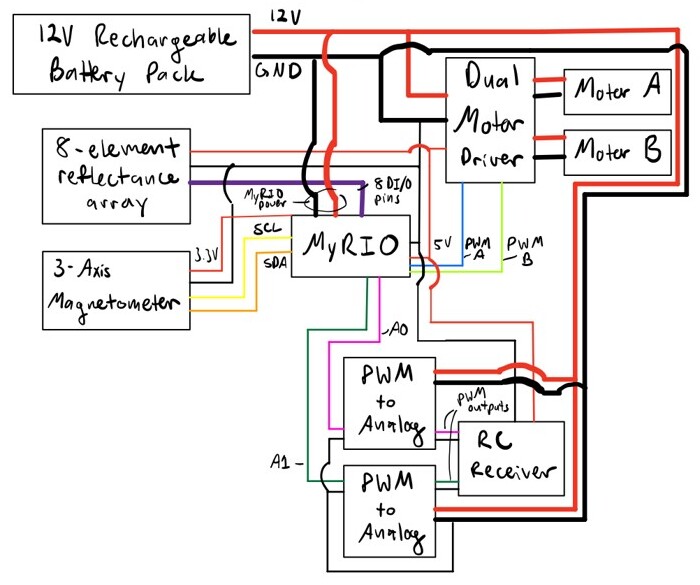 12V
12V Rechargeable
Battery Pack
GND
Dual
Motor
Driver
Motor A
Motor B
8-element
reflectance
array
MyRIO
power
8 DI/O
pins
MyRIO
3.3V
SCL
SDA
5V
PWM
A
PWM
B
3-Axis
Magnetometer
A0
PWM
to
Analog
PWM
outputs
RC
Receiver
A1
PWM
to
Analog